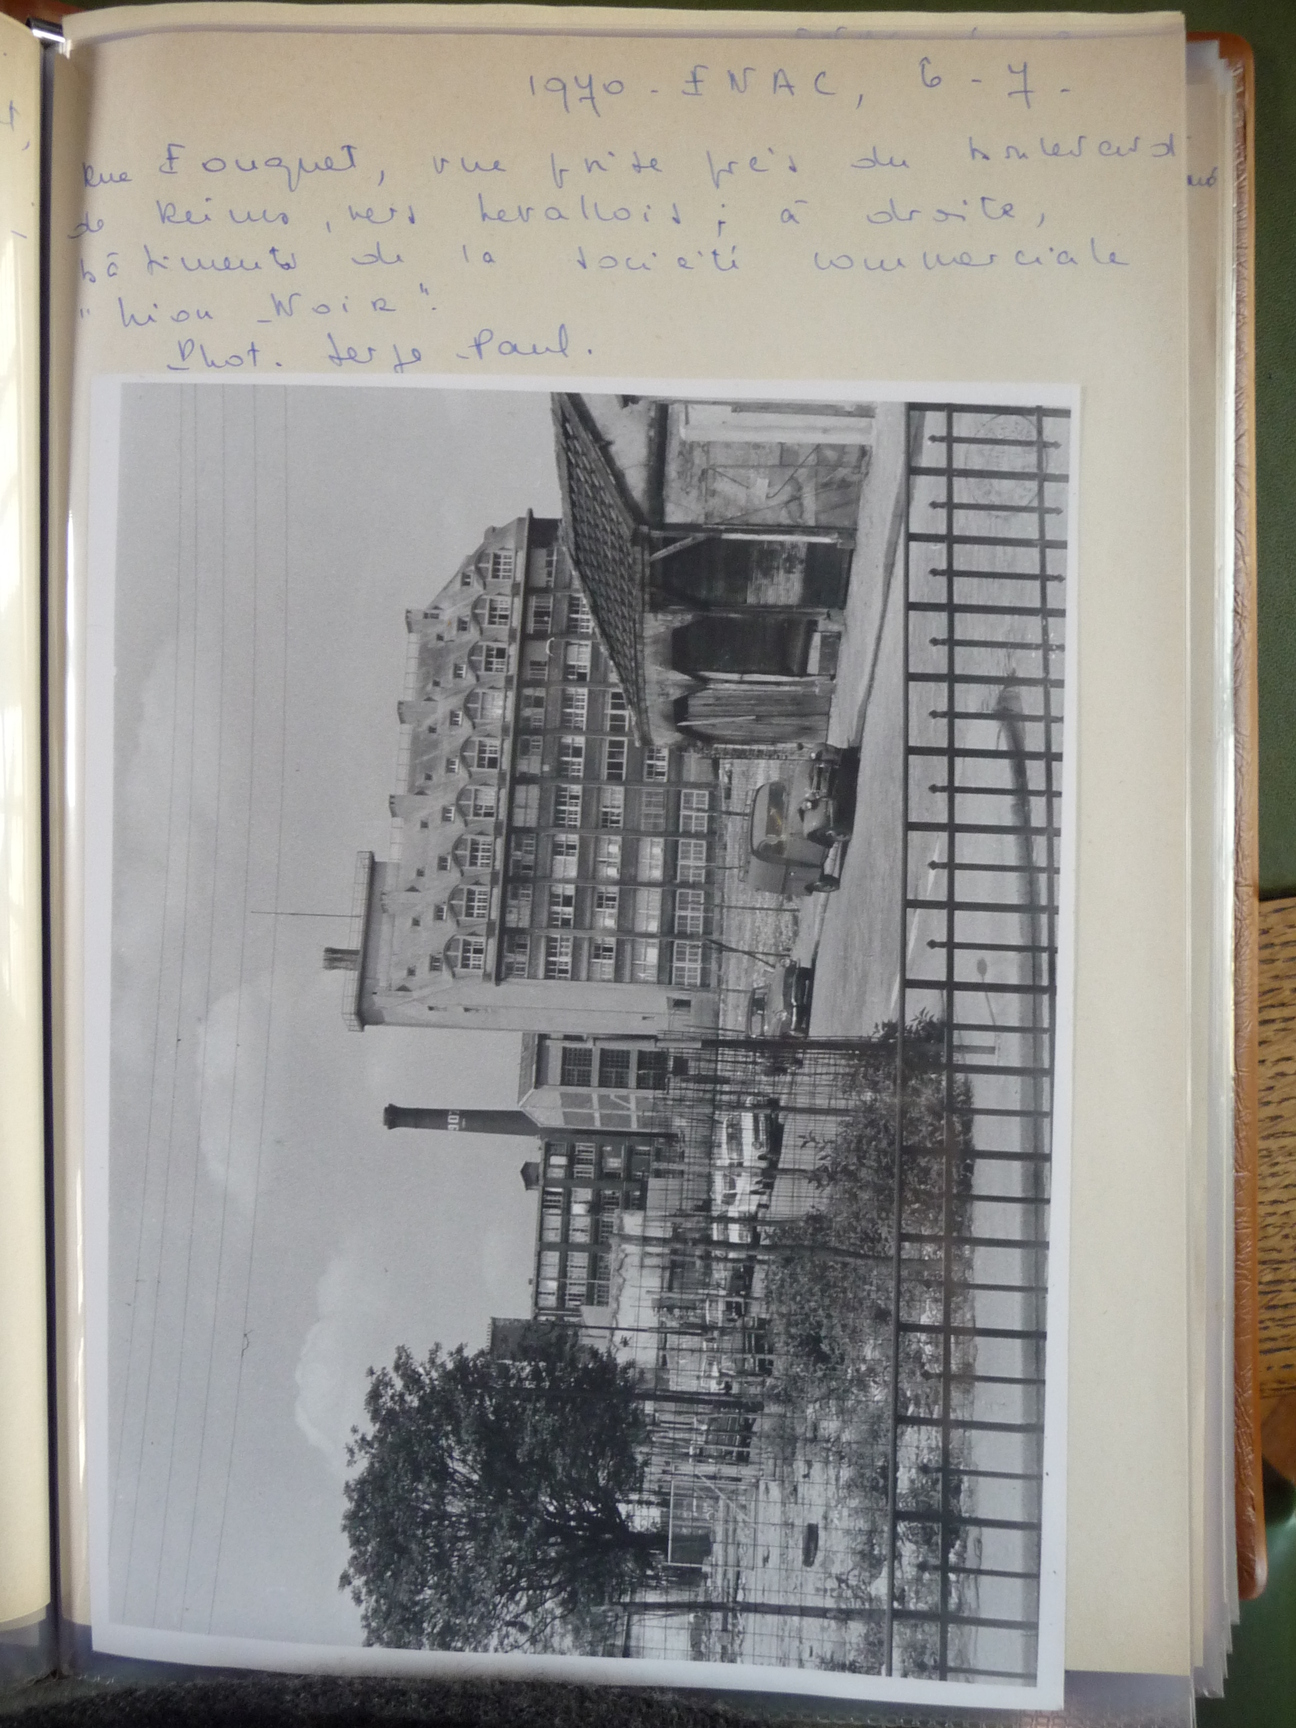 1970 - ENAC, 6-7.
Rue Fouquet, vue prise près du boulevard
de Reims, vers Levallois ; à droite,
bâtiments de la société commerciale
"Lion Noir".
Phot. Serge Paul.